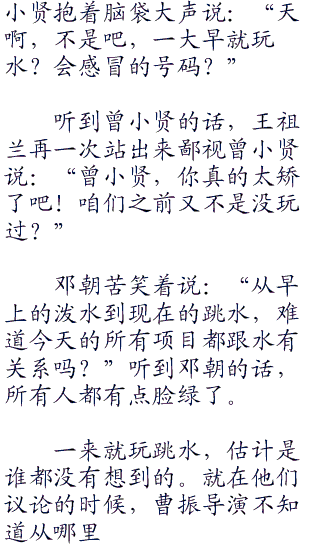 小贤抱着脑袋大声说：“天
啊，不是吧，一大早就玩
水？会感冒的号码？”
听到曾小贤的话，王祖
兰再一次站出来鄙视曾小贤
说：“曾小贤，你真的太矫
了吧！咱们之前又不是没玩
过？”
邓朝苦笑着说：“从早
上的泼水到现在的跳水，难
道今天的所有项目都跟水有
关系吗？”听到邓朝的话，
所有人都有点脸绿了。
一来就玩跳水，估计是
谁都没有想到的。就在他们
议论的时候，曹振导演不知
道从哪里